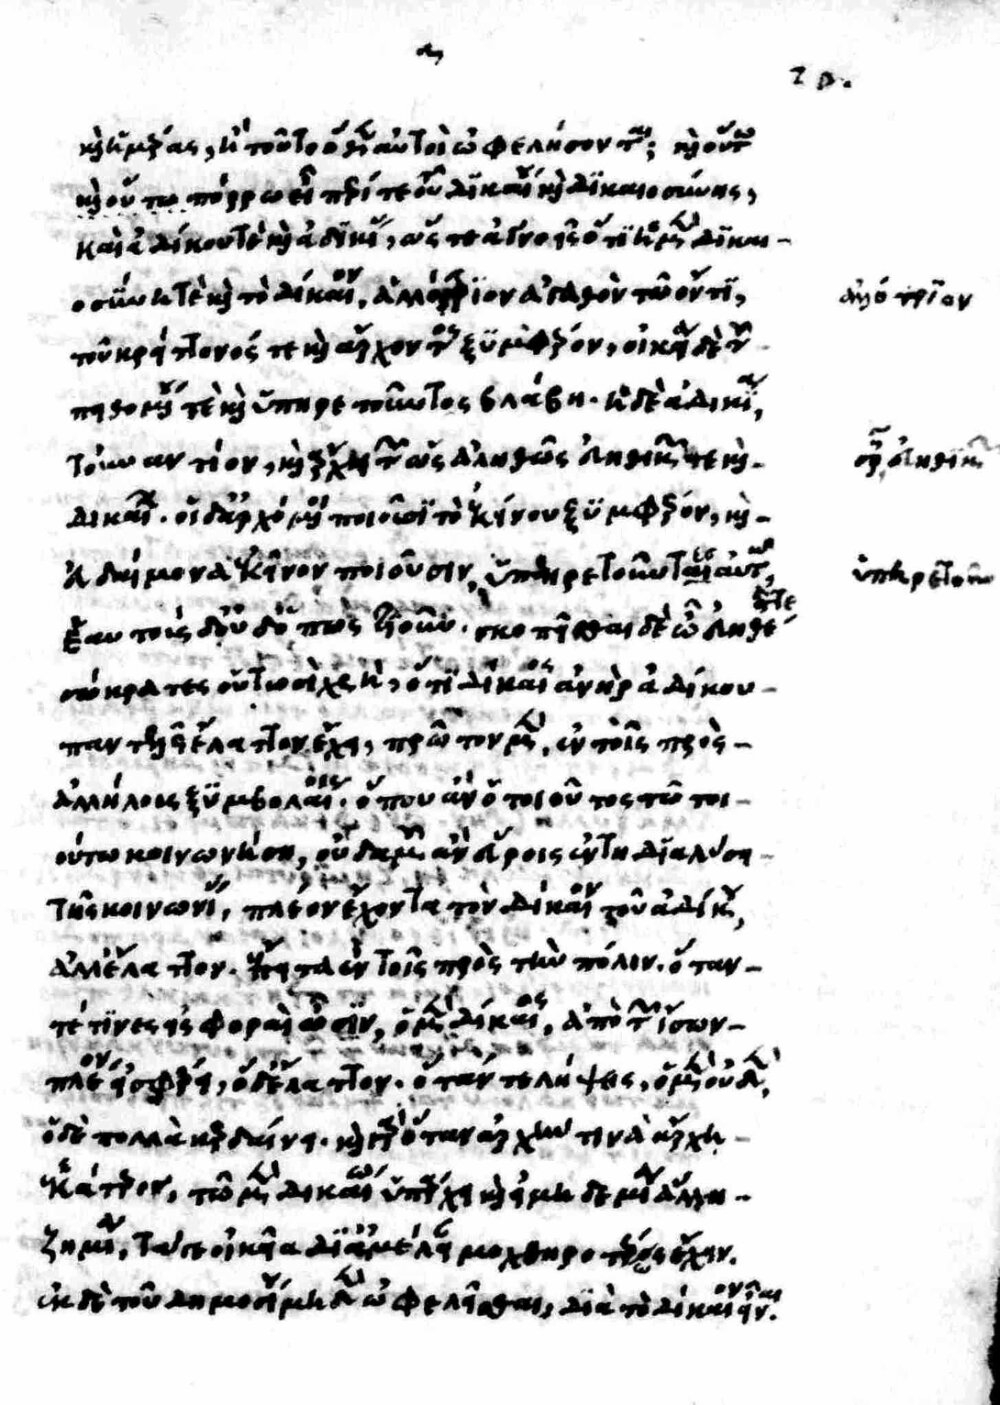 καὶ ἡμέρας, ἢ τοῦτο ὅθεν αὐτοὶ ὠφελήσονται; καὶ οὕτω
καὶ οὕτω πόρρω εἶ περί τε τοῦ δικαίου καὶ δικαιοσύνης,
καὶ ἀδίκου τὲ καὶ ἀδικίας, ὥς τε ἀγνοεῖς ὅτι ἡ μὲν δικαι-
οσύνη τὲ καὶ τὸ δίκαιον, ἀλλότριον ἀγαθὸν τῶ ὄντι,
τοῦ κρείττονός τε καὶ ἄρχοντος ξυμφέρον, οἰκεία δὲ τοῦ
πειθομένου τὲ καὶ ὑπηρετοῦντος βλάβη. ἡ δὲ ἀδικία,
τοὐναντίον, καὶ ἄρχει τῶν ὡς ἀληθῶς εὐηθικῶν τε καὶ
δικαίων. οἱ δ' ἀρχόμενοι ποιοῦσι τὸ ἐκείνου ξυμφέρον, καὶ
εὐδαίμονα ἐκεῖνον ποιοῦσιν, ὑπηρετοῦντες αὐτῶ,
ἑαυτοὺς δὲ οὐδ' ὁπωστιοῦν. σκοπεῖσθαι δὲ ὦ εὐηθέστατε
σώκρατες οὑτωσὶ χρή, ὅτι δίκαιος ἀνὴρ ἀδίκου
πανταχοῦ ἔλαττον ἔχει, πρῶτον μὲν, ἐν τοῖς πρὸς
ἀλλήλους ξυμβολαίοις. ὅπου ἂν ὁ τοιοῦτος τῶ τοι-
ούτω κοινωνήση, οὐδαμοῦ ἂν εὕροις ἐν τῆ διαλύσει
τῆς κοινωνίας, πλέον ἔχοντα τὸν δίκαιον τοῦ ἀδίκου,
ἀλλ' ἔλαττον. ἔπειτα ἐν τοῖς πρὸς τὴν πόλιν. ὅταν
τέ τινες εἰσφοραὶ ὦσιν, ὁ μὲν δίκαιος, ἀπὸ τῶν ἴσων
πλέον εἰσφέρει, ὁ δ' ἔλαττον. ὅταν τε λήψεις, ὁ μὲν οὐδὲν,
ὁ δὲ πολλὰ κερδαίνει. καὶ γὰρ ὅταν ἀρχήν τινα ἄρχη
ἑκάτερος, τῶ μὲν δικαίω ὑπάρχει καὶ εἰ μηδεμία ἄλλη
ζημία, τά γε οἰκεῖα δι' ἀμέλειαν μοχθηροτέρως ἔχειν.
ἐκ δὲ τοῦ δημοσίου μηδὲν ὠφελεῖσθαι, διὰ τὸ δίκαιον εἶναι.
ἀλλότριον
ὑπηρετοῦν